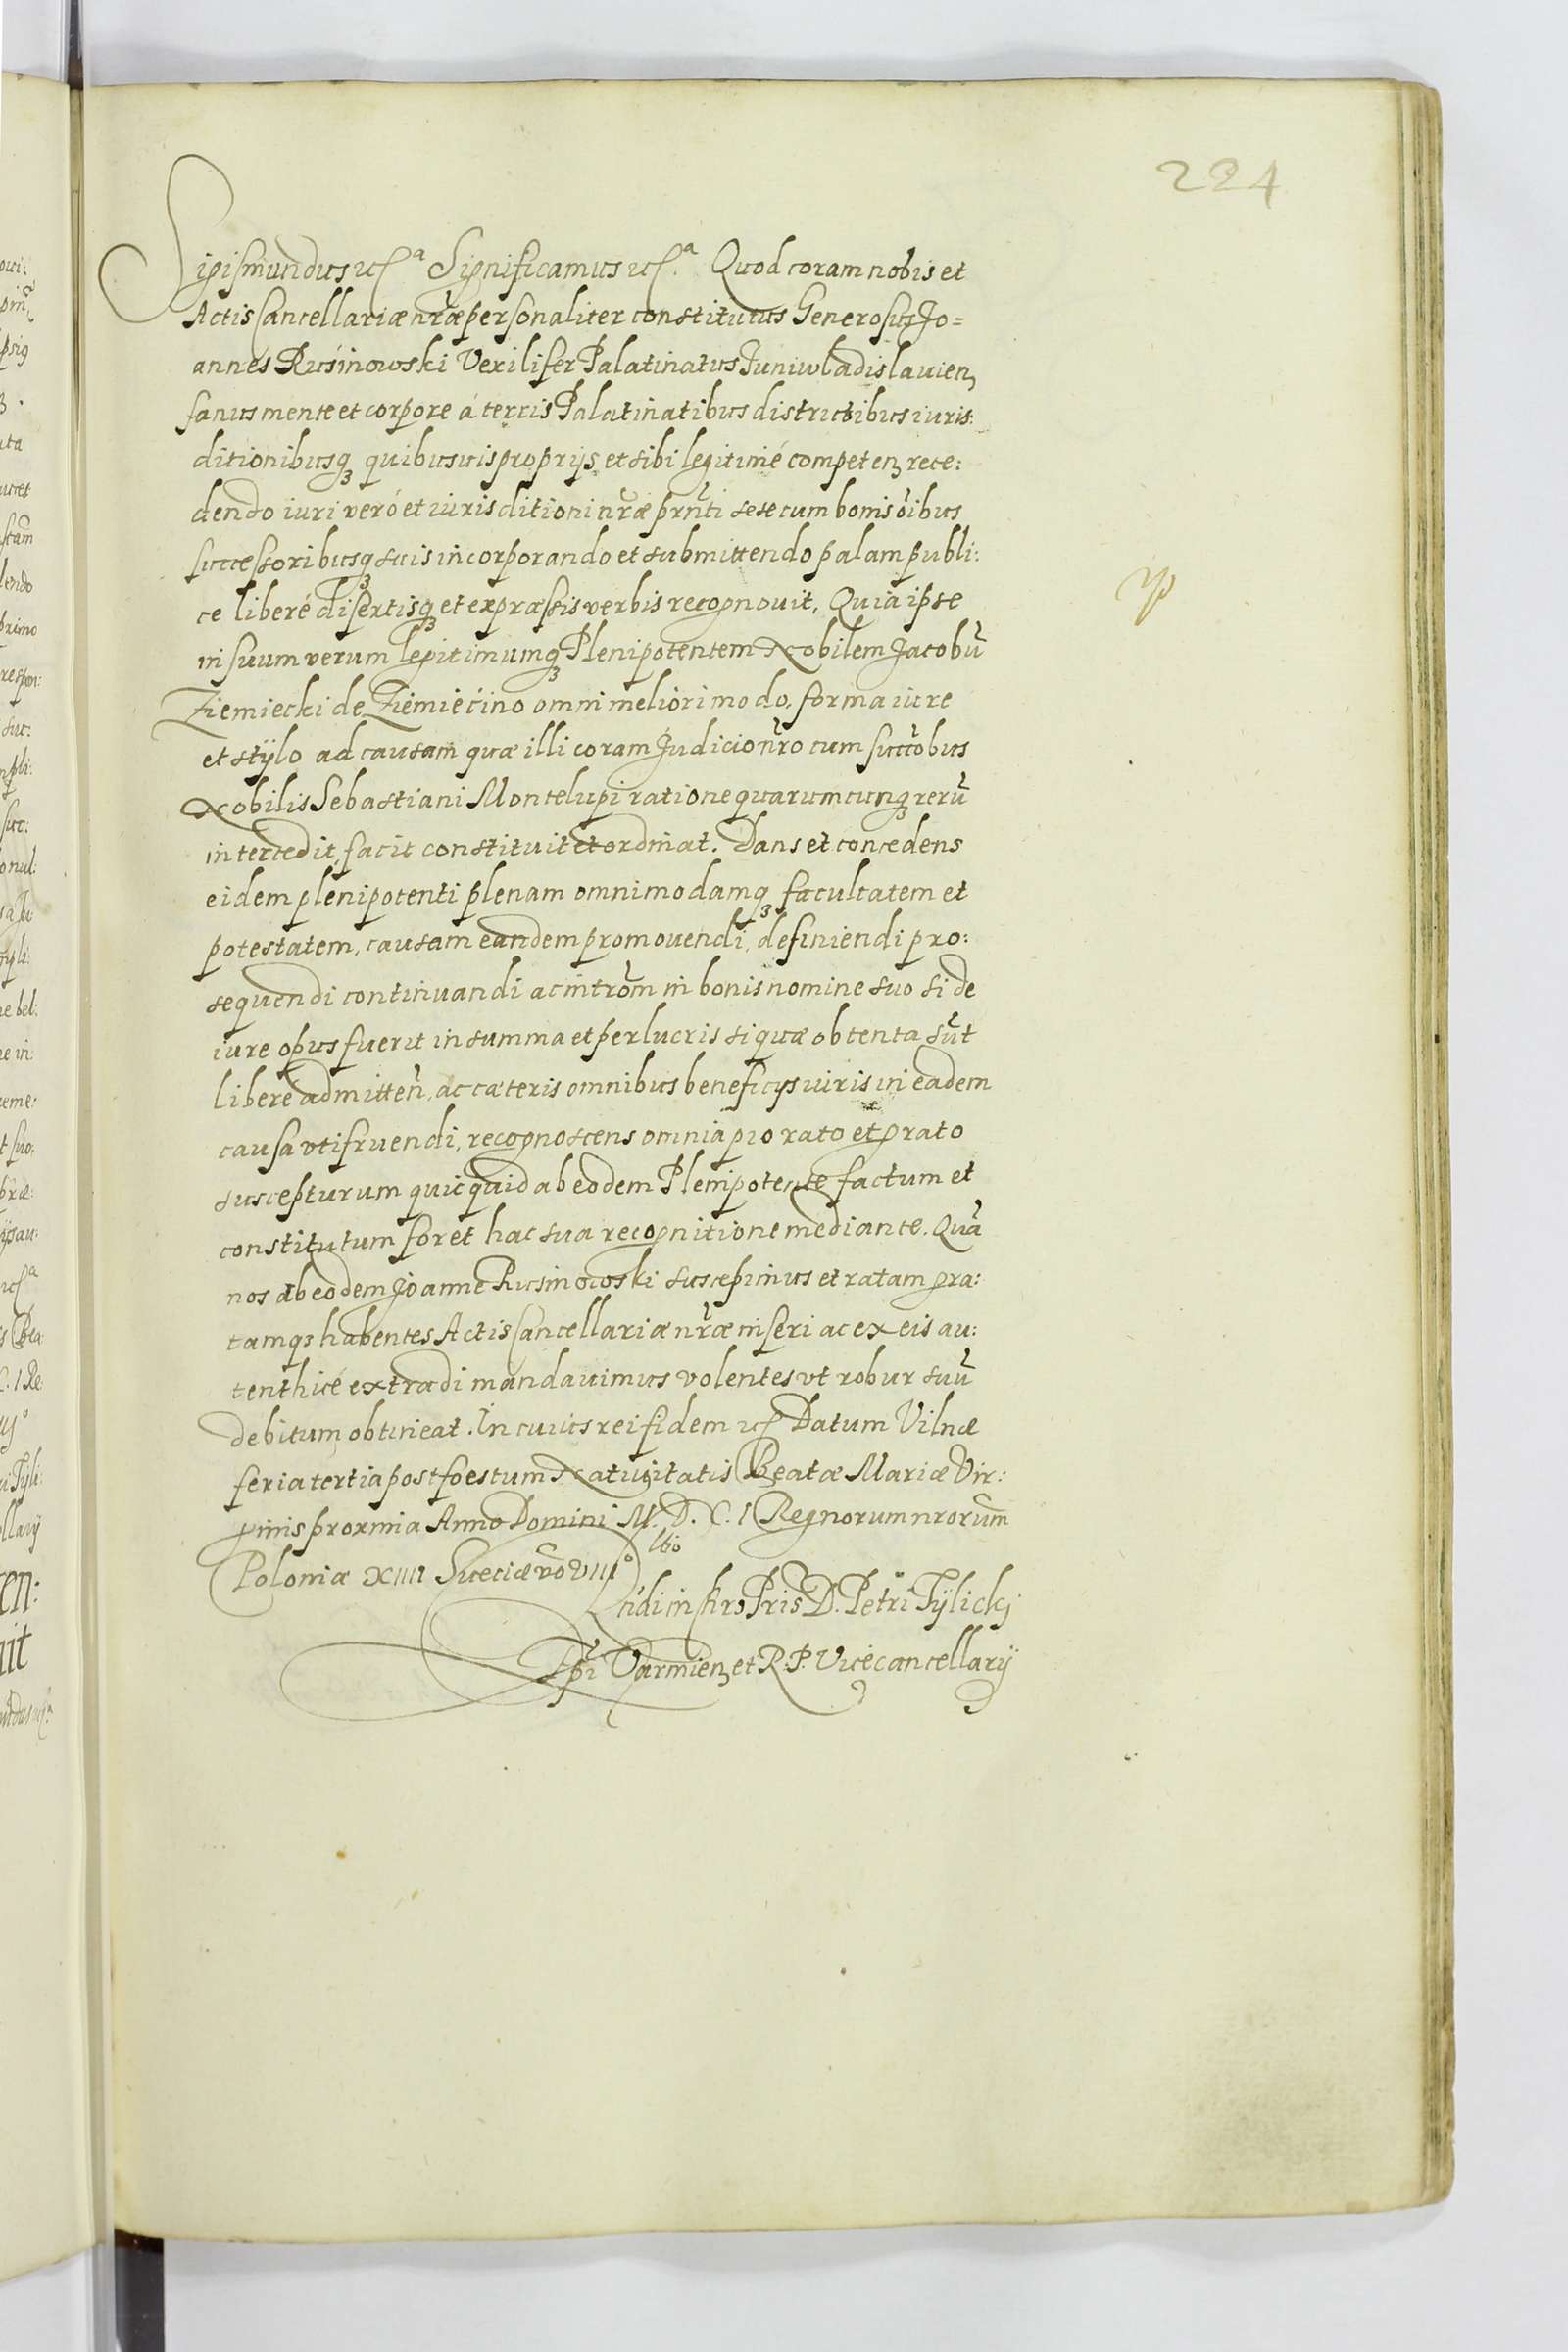 224
Sigismundus etc.ª Significamus etc.ª Quod coram nobis et
Actis Cancellariæ nr̃æ personaliter constitutus Generosus Jo=
annes Rusinowski Vexilifer Palatinatus Juniwladislauien̄
sanus mente et corpore á terris Palatinatibus districtibus iuris:
ditionibusq3 quibusuis proprijs et sibi legitimé competen̄ rece:
dendo iuri veró et iurisditioni nr̃æ prñti sese cum bonis õibus
successoribusq3 suis incorporando et submittendo palam publi:
ce liberé disertisq3 et expræssis verbis recognouit. Quia ipse
in suum verum legitimumq3 Plenipotentem Nobilem Jacobũ
Ziemiecki de Ziemiécino omni meliori modo, forma iure
et stÿlo ad causam quæ illi coram Judicio nr̃o cum succr̃obus
Nobilis Sebastiani Montelupi ratione quarumcunq3 rerũ
intercedit facit constituit et ordinat. Dans et concedens
eidem plenipotenti plenam omnimodamq3 facultatem et
potestatem, causam eandem promouendi, definiendi pro:
sequendi continuandi ac intrõm in bonis nomine suo si de
iure opus fuerit in summa et per lucris si quæ obtenta sũt
libere admitteñ, ac cæteris omnibus beneficijs iuris in eadem
causa vtifruendi, recognoscens omnia pro rato et grato
suscepturum quicquid ab eodem Plenipotente factum et
constitutum foret hac sua recognitione mediante. Quã
nos ab eodem Joanne Rusinowski suscepimus et ratam gra:
tamq3 habentes Actis Cancellariæ nr̃æ inseri ac ex eis au:
tenthicé extradi mandauimus volentes vt robur suũ
debitum obtineat. In cuius rei fidem etc Datum Vilnæ
feria tertia post foestum Natiuitatis Beatæ Mariæ Vir:
ginis proxmia Anno Domini M. D. C. I Regnorum nrorũm
Poloniæ XIIII Sueciæ võ VIII°
Rñdi in Chr̃o Pris D. Petri Tÿlickj
Ep̃i Varmien̄ et R. P. Vicecancellarij